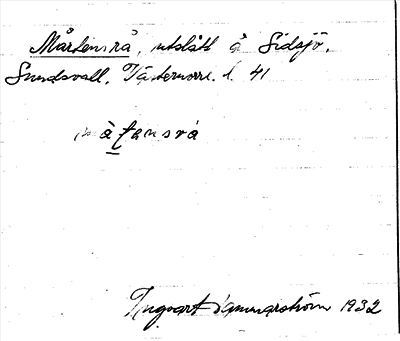 Mårtensrå, utslått å Sidsjö,
Sundsvall, Västernorrl. l. 41
måtansrå
Ingvart Hammarström 1932